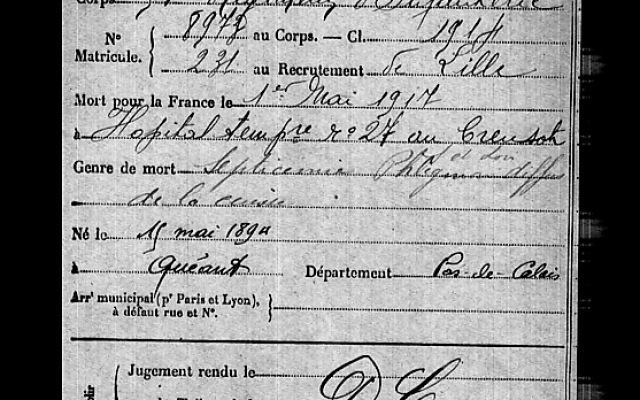 Corps
N° Matricule. { 8973 au Corps. — Cl. 1914
231 au Recrutement de Lille
Mort pour la France le 1er Mai 1917
à Hopital tempre no 27 au Creusot
Genre de mort Septicemie Phlegmon diffus
de la cuisse
Né le 15 mai 1894
à Quéant Département Pas-de-Calais
Arrt municipal (pr Paris et Lyon),
à défaut rue et N°.
Jugement rendu le